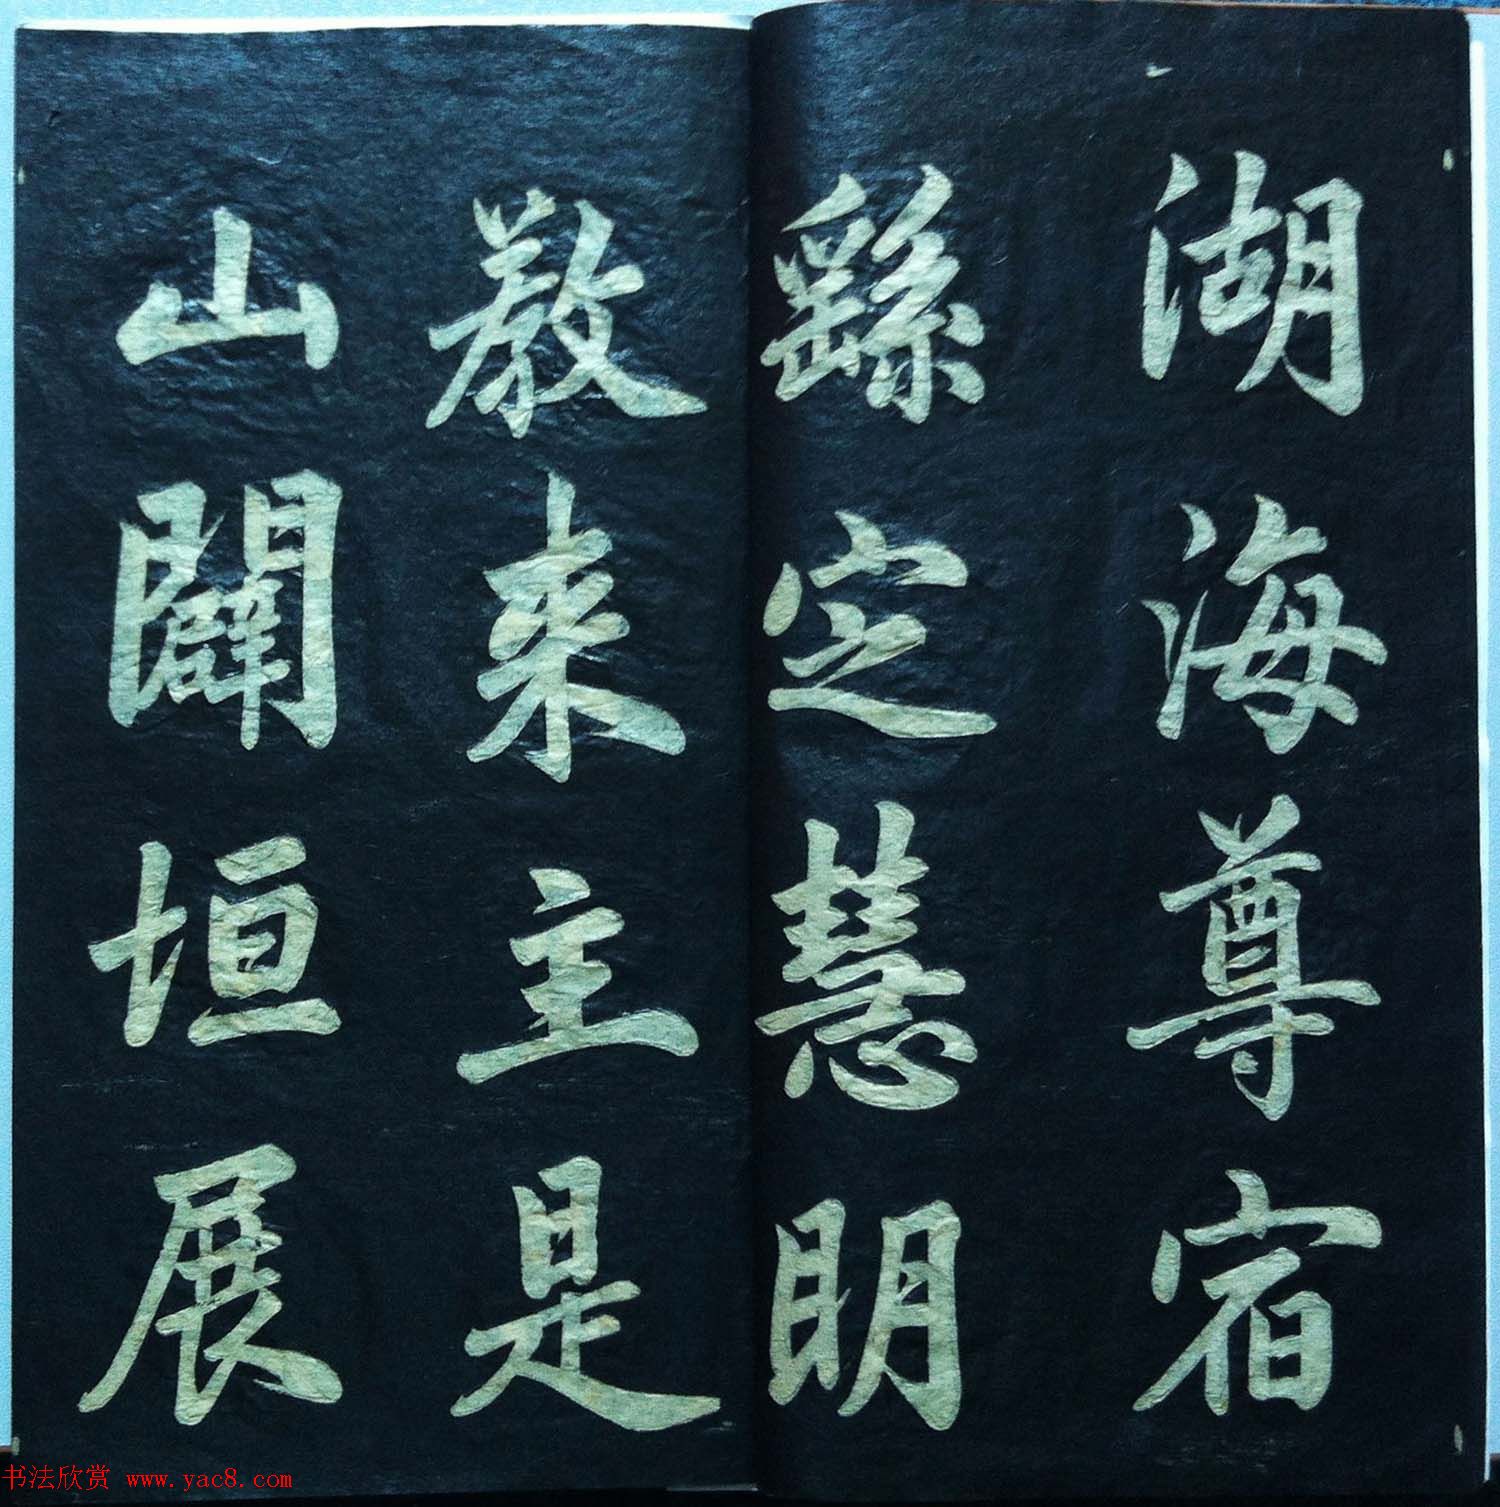 湖海尊宿
繇定慧明
教来主是
山闢垣展
书法欣赏 www.yac8.com